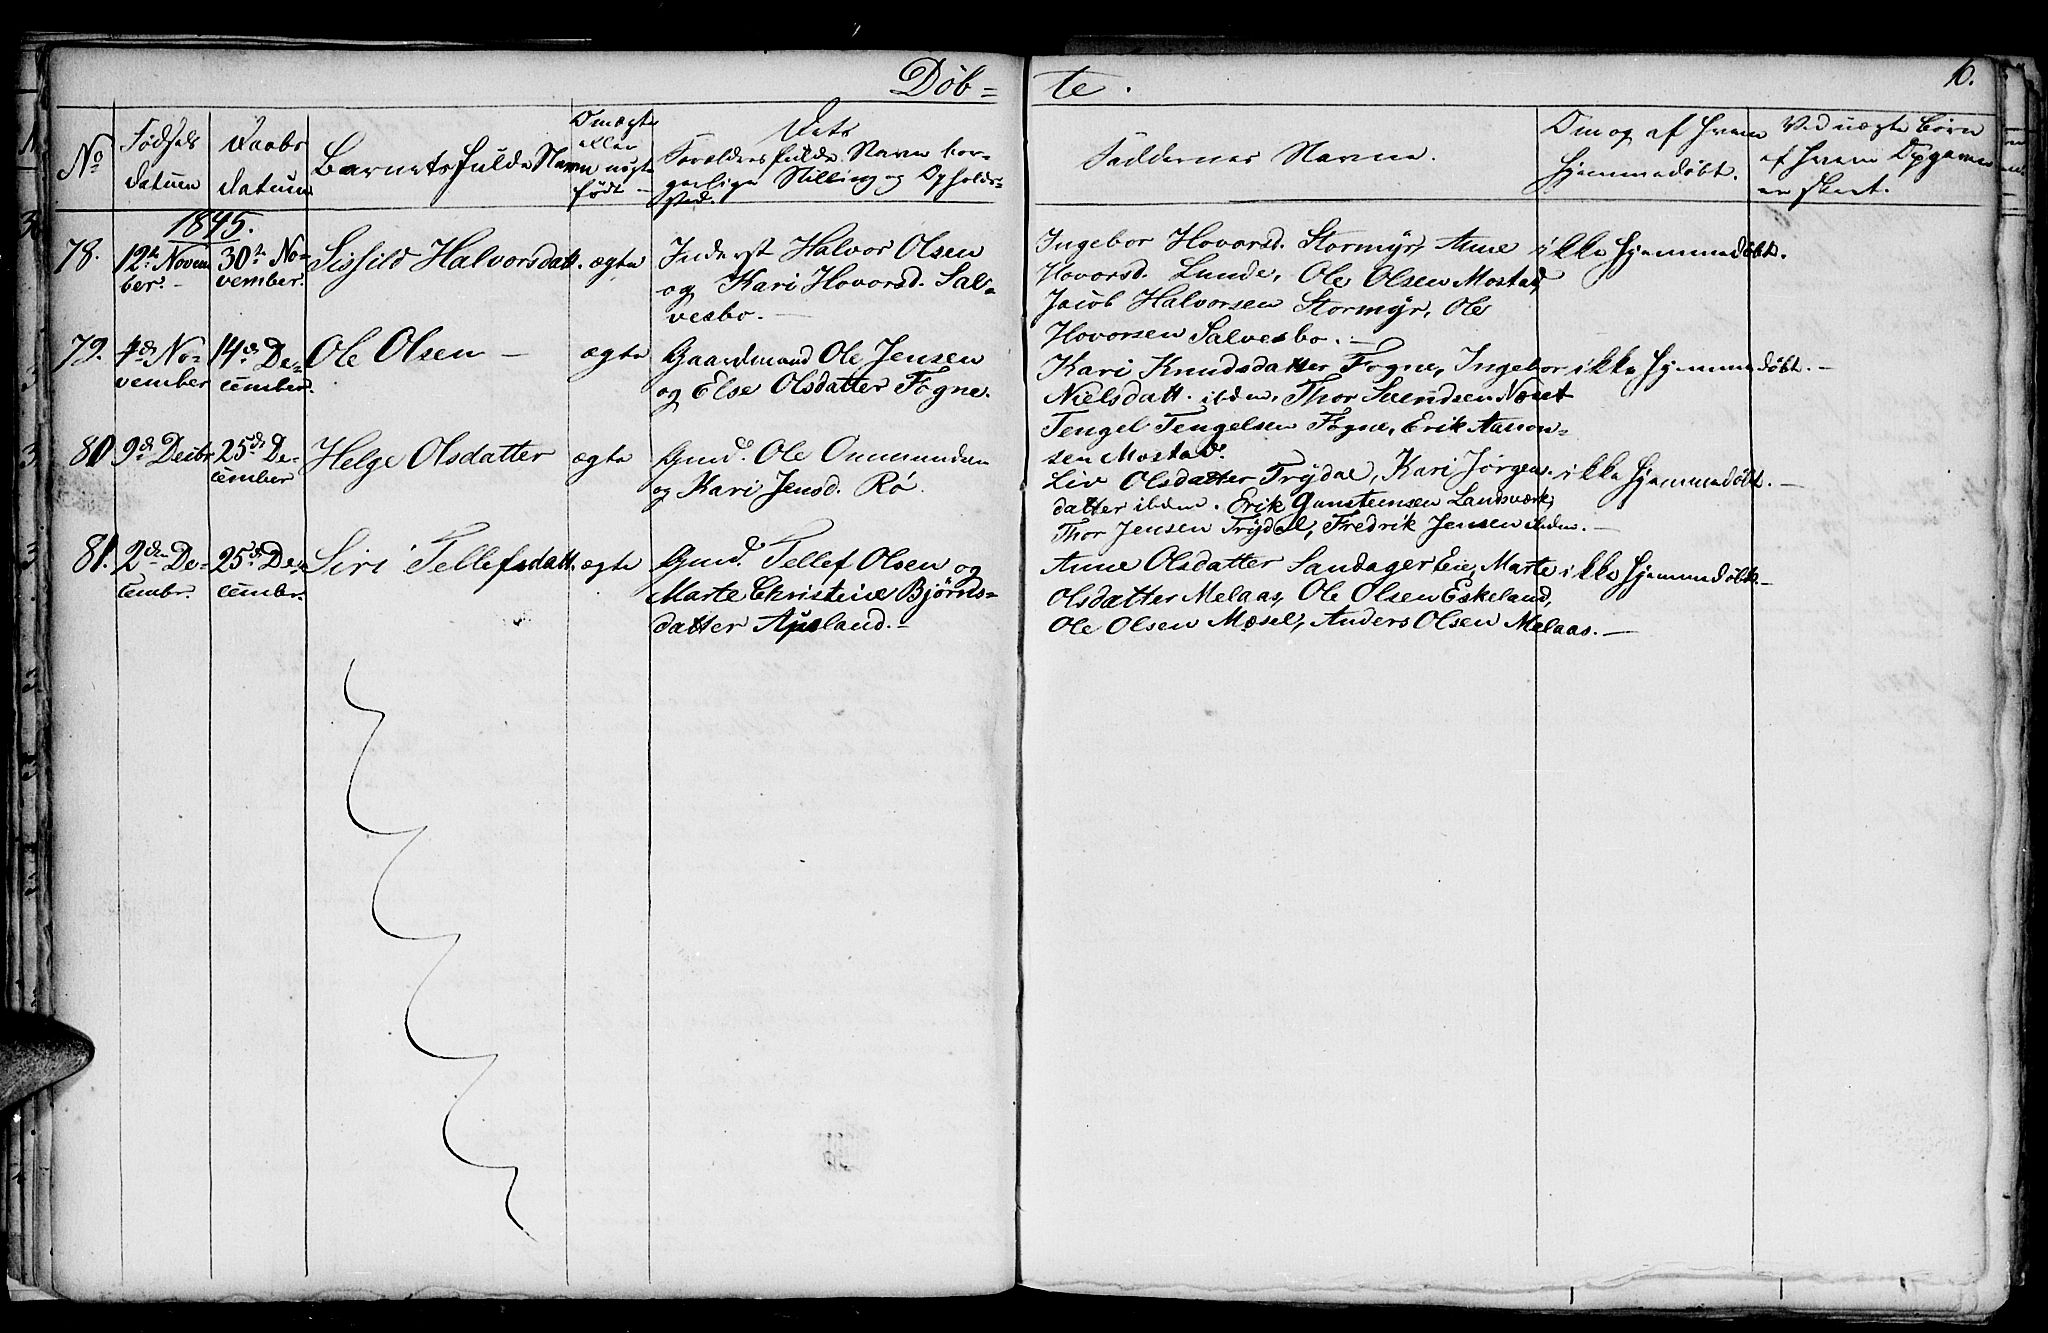 Døb=
te.
6.
No
Fødsels datum
Daabs datum
Barnets fulde Navn
Om ægte eller uægte født
Dets Forældres fulde Navn borgerlige Stilling og Opholds=sted.
Faddernes Navne.
Om og af hvem hjemmedøbt.
Ved uægte Børn af hvem Opgaven er skeet.
1845.
78.
12te Novem
ber.
30te No=
vember.
Sissild Halvorsdatt.
ægte
Inderst Halvor Olsen
og Kari Hovorsd. Sal=
vesbo.
Ingebor Hovorsd. Stormyr, Anne
Hovorsd. Lunde, Ole Olsen Mostad,
Jacob Halvorsen Stormyr, Ole
Hovorsen Salvesbo.
ikke hjemmedøbt.
79.
4de No=
vember
14de De=
cember.
Ole Olsen
ægte
Gaardmand Ole Jensen
og Else Olsdatter Fogne.
Kari Knudsdatter Fogne, Ingebor
Nielsdatt. ibdem, Thor Svendsen
Tengel Tengelsen Fogne, Erik Aanon=
sen Mostad.
ikke hjemmedøbt.
80
9de Decbr
25de De=
cember
Helge Olsdatter
ægte
Gmd. Ole Ommundsen
og Kari Jensd. Rø.
Liv Olsdatter Trydal, Kari Jørgens=
datter ibdem. Erik Gunsteinsen Landsværk,
Thor Jensen Trydal, Fredrik Jensen ibdem.
ikke hjemmedøbt.
81.
2den De=
cembr.
25de De=
cember.
Siri Tellefsdatt.
ægte
Gmd. Tellef Olsen og
Marte Christine Bjørns=
datter Ausland.
Anne Olsdatter Sandager Eie, Marte
Olsdatter Melaas, Ole Olsen Eskeland,
Ole Olsen Mæsel, Anders Olsen Melaas.
ikke hjemmedøbt.